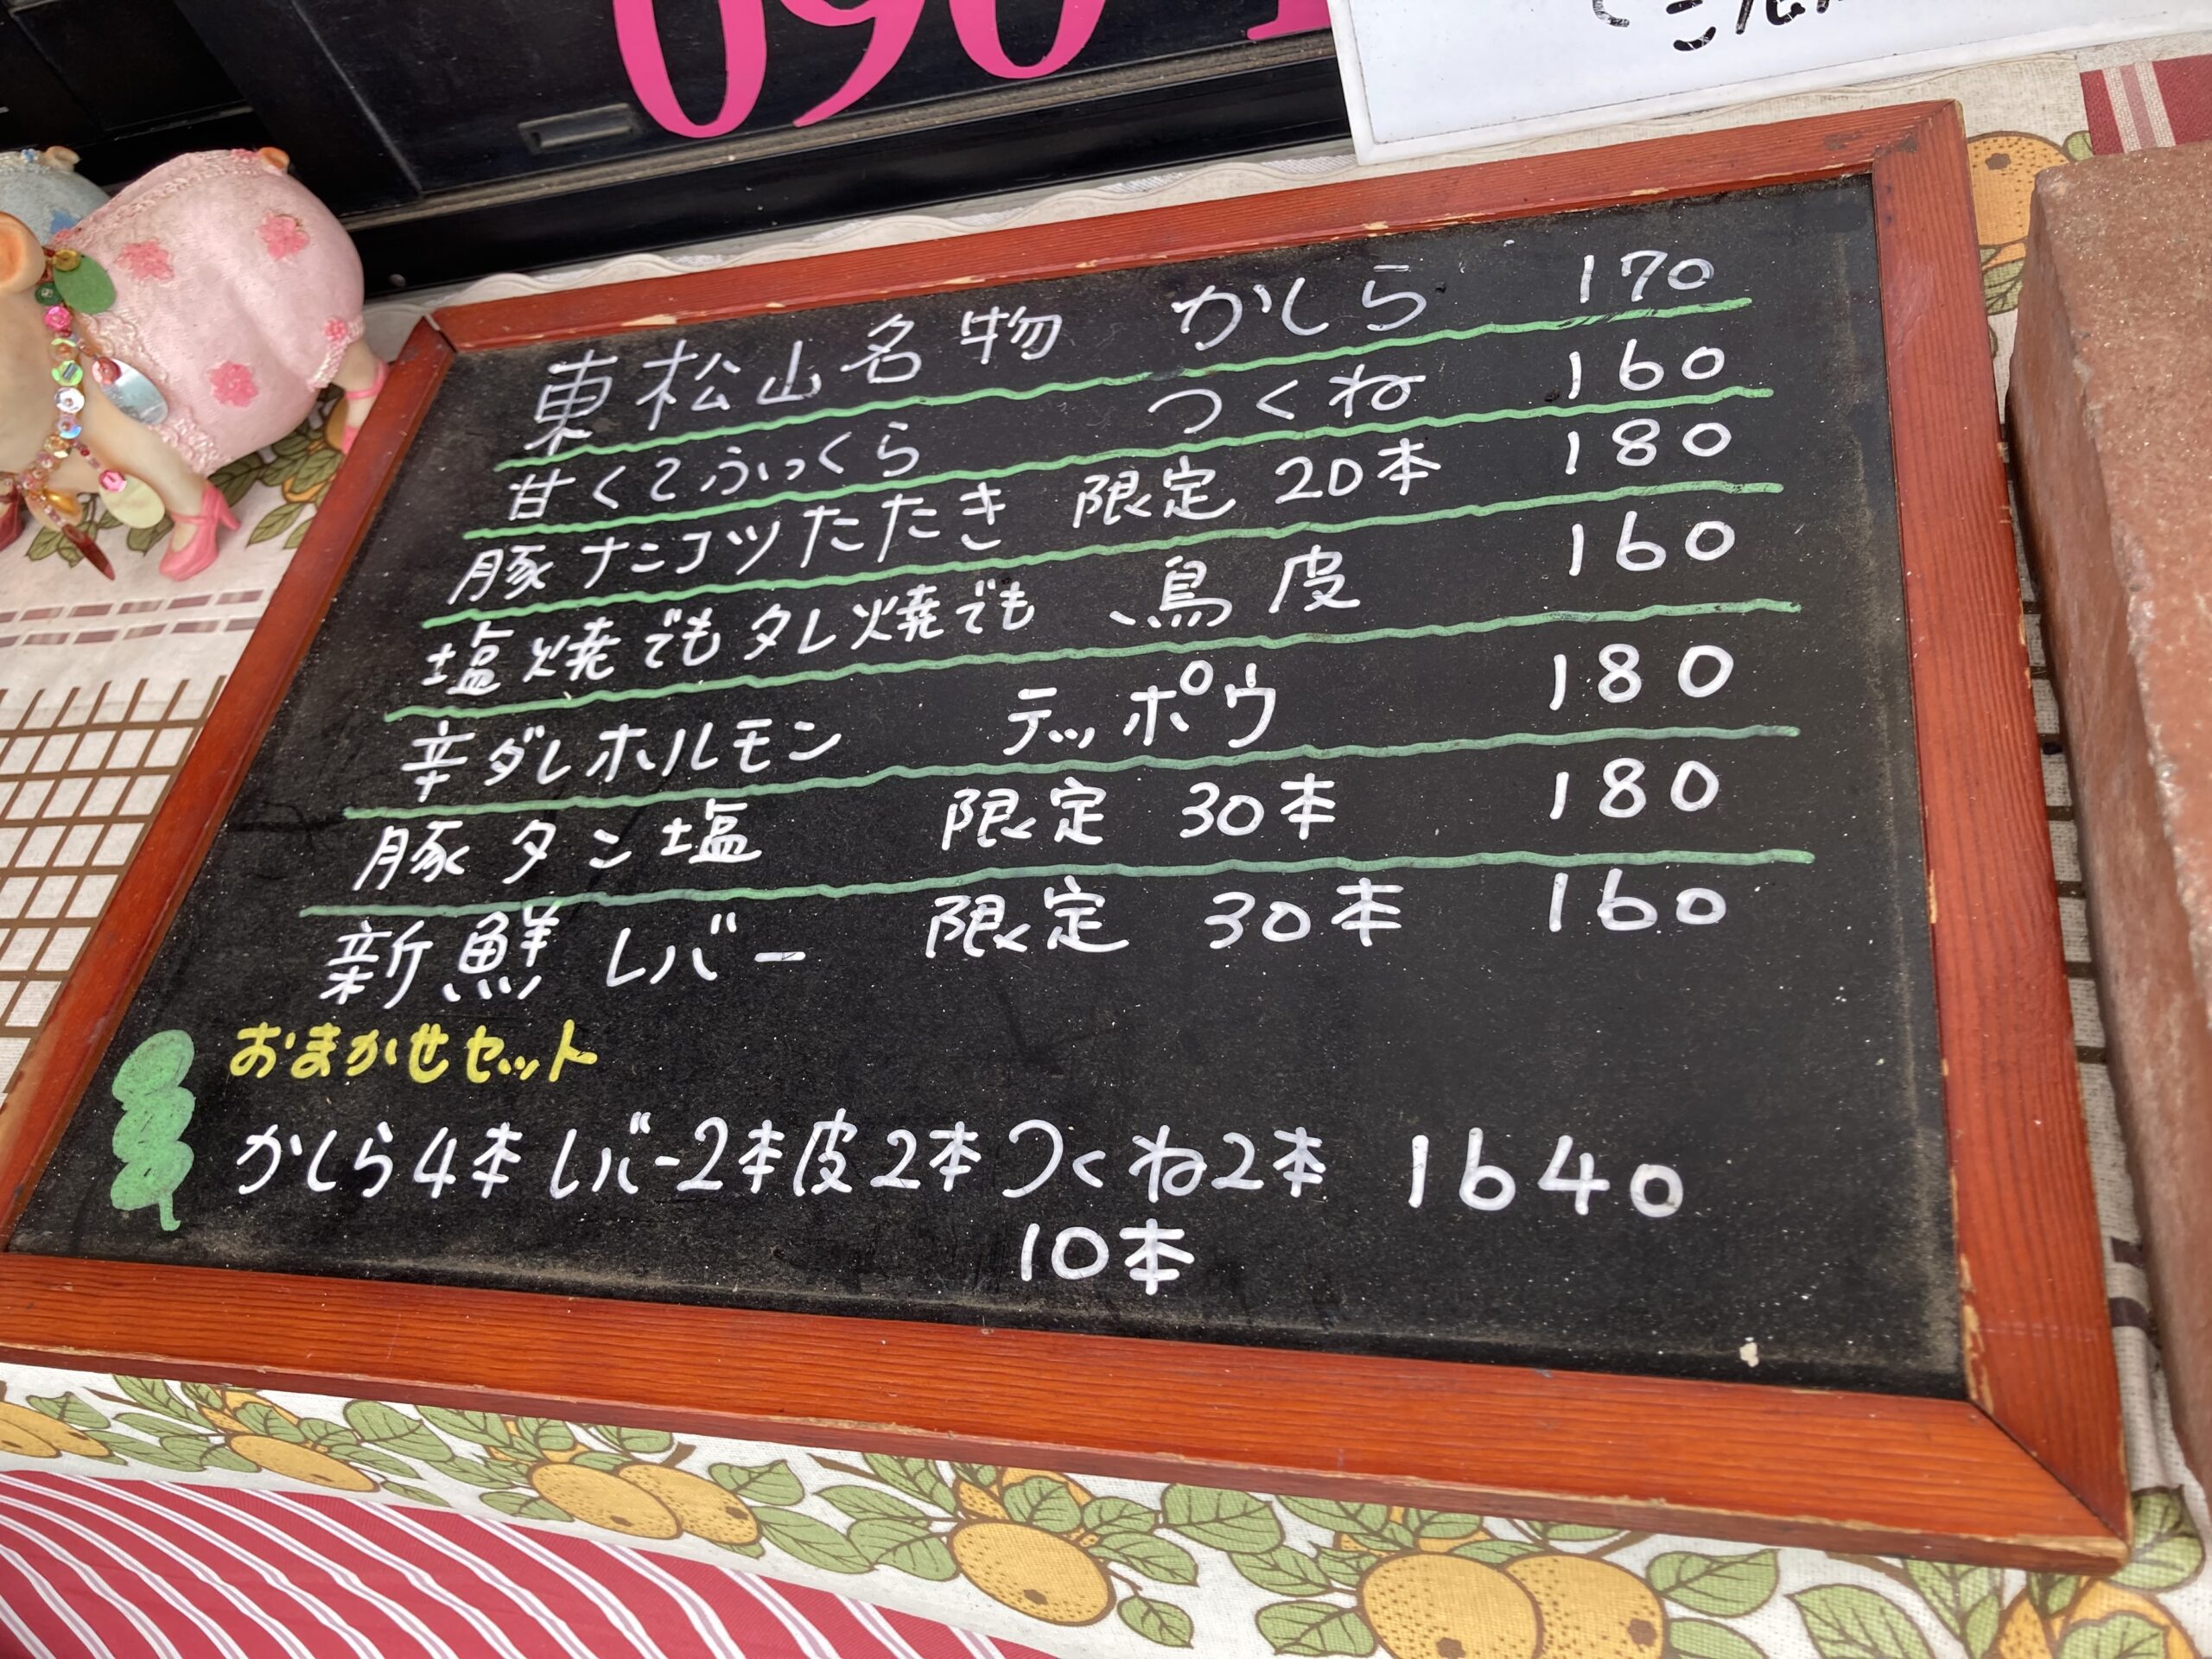 090
東松山名物 かしら 170
甘くてふっくら つくね 160
豚ナンコツたたき 限定 20本 180
塩焼でもタレ焼でも 鳥皮 160
辛ダレホルモン テッポウ 180
豚タン塩 限定 30本 180
新鮮レバー 限定 30本 160
おまかせセット
かしら4本レバー2本皮2本つくね2本 1640
10本